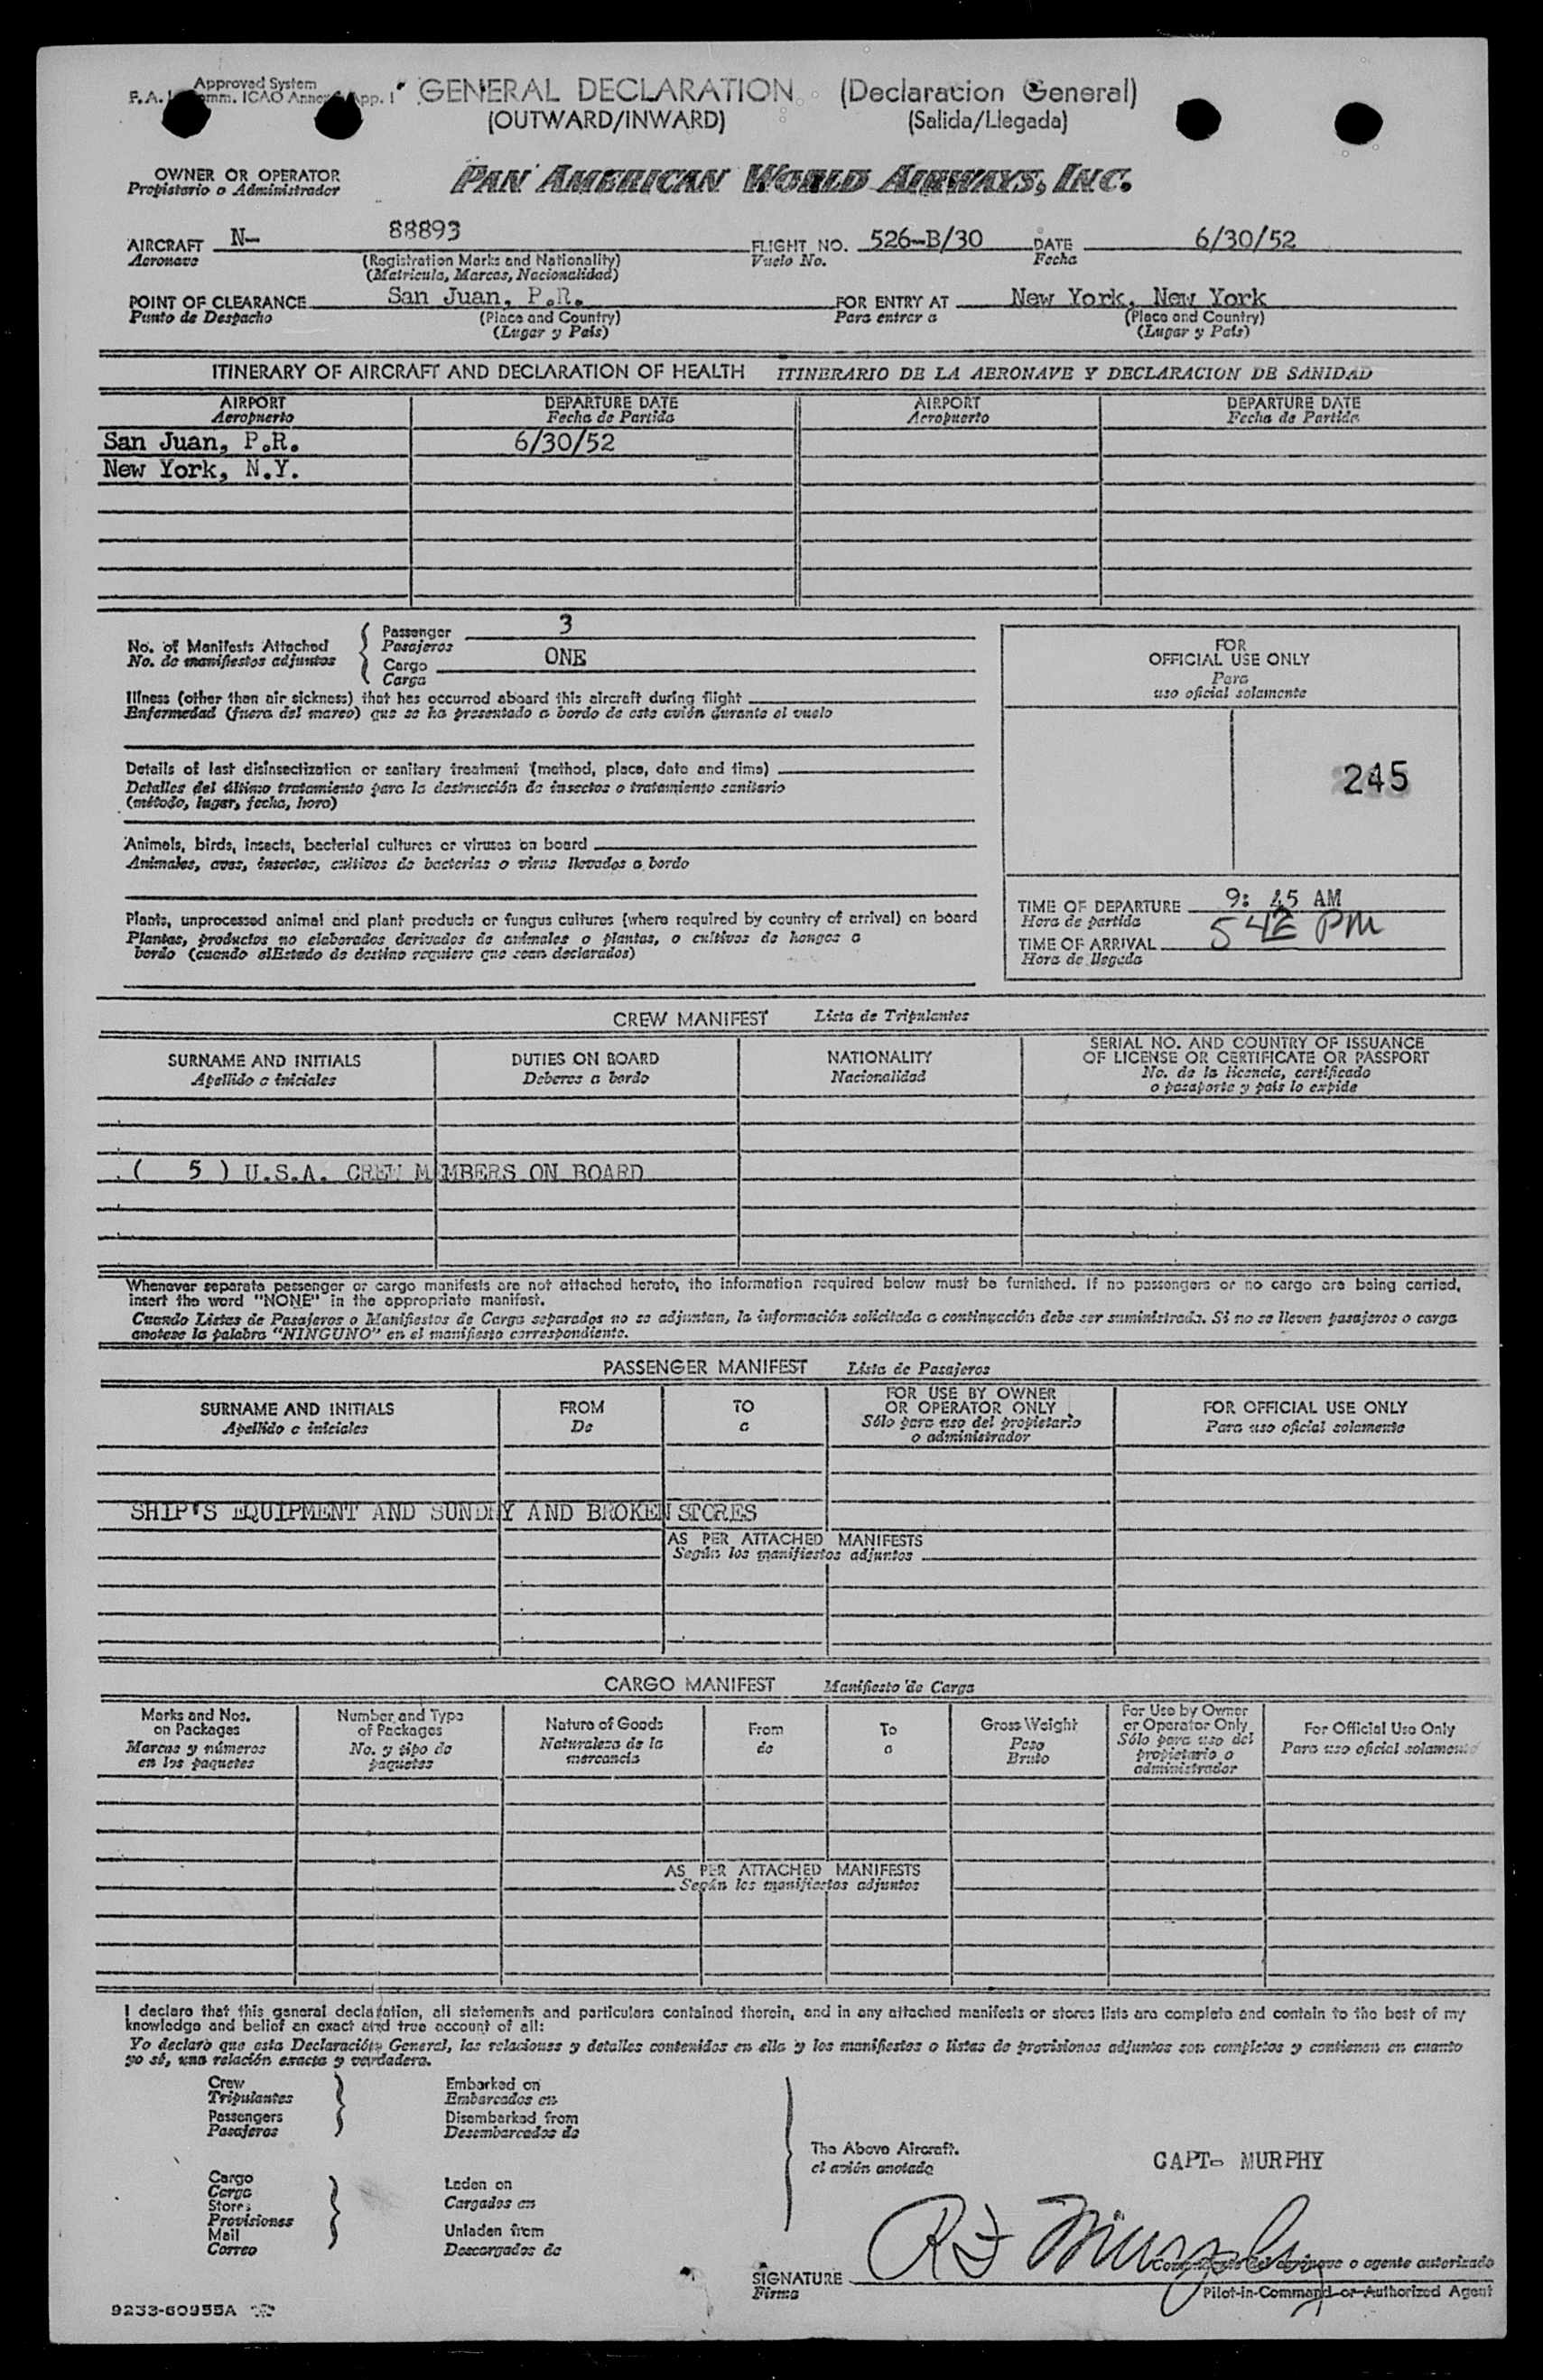 Approved System
GENERAL DECLARATION (Declaracion General)
(OUTWARD/INWARD) (Salida/Llegada)
OWNER OR OPERATOR
Propietario o Administrador
PAN AMERICAN WORLD AIRWAYS, INC.
AIRCRAFT N- 88893 FLIGHT NO. 526-B/30 DATE 6/30/52
Aeronave (Registration Marks and Nationality) Vuelo No. Fecha
(Matricula, Marcas, Nacionalidad)
POINT OF CLEARANCE San Juan, P.R. FOR ENTRY AT New York, New York
Punto de Despacho (Place and Country) Para entrar a (Place and Country)
(Lugar y País) (Lugar y País)
ITINERARY OF AIRCRAFT AND DECLARATION OF HEALTH ITINERARIO DE LA AERONAVE Y DECLARACION DE SANIDAD
AIRPORT DEPARTURE DATE AIRPORT DEPARTURE DATE
Aeropuerto Fecha de Partida Aeropuerto Fecha de Partida
San Juan, P.R. 6/30/52
New York, N.Y.
No. of Manifests Attached Passenger 3
No. de manifiestos adjuntos Pasajeros
Cargo ONE
Carga
Illness (other than air sickness) that has occurred aboard this aircraft during flight
Enfermedad (fuera del mareo) que se ha presentado a bordo de este avión durante el vuelo
Details of last disinsectization or sanitary treatment (method, place, date and time)
Detalles del último tratamiento para la destrucción de insectos o tratamiento sanitario
(método, lugar, fecha, hora)
Animals, birds, insects, bacterial cultures or viruses on board
Animales, aves, insectos, cultivos de bacterias o virus llevados a bordo
Plants, unprocessed animal and plant products or fungus cultures (where required by country of arrival) on board
Plantas, productos no elaborados derivados de animales o plantas, o cultivos de hongos a
bordo (cuando elEstado de destino requiere que sean declarados)
FOR
OFFICIAL USE ONLY
Para
uso oficial solamente
245
TIME OF DEPARTURE 9: 45 AM
Hora de partida
TIME OF ARRIVAL 542 PM
Hora de llegada
CREW MANIFEST Lista de Tripulantes
SURNAME AND INITIALS DUTIES ON BOARD NATIONALITY SERIAL NO. AND COUNTRY OF ISSUANCE
OF LICENSE OR CERTIFICATE OR PASSPORT
Apellido e iniciales Deberes a bordo Nacionalidad No. de la licencia, certificado
o pasaporte y país lo expide
( 5 ) U.S.A. CREW MEMBERS ON BOARD
Whenever separate passenger or cargo manifests are not attached hereto, the information required below must be furnished. If no passengers or no cargo are being carried,
insert the word "NONE" in the appropriate manifest.
Cuando Listas de Pasajeros o Manifiestos de Carga separados no se adjuntan, la información solicitada a continuación debe ser suministrada. Si no se lleven pasajeros o carga
anotese la palabra "NINGUNO" en el manifiesto correspondiente.
PASSENGER MANIFEST Lista de Pasajeros
SURNAME AND INITIALS FROM TO FOR USE BY OWNER
OR OPERATOR ONLY FOR OFFICIAL USE ONLY
Apellido e iniciales De a Sólo para uso del propietario
o administrador Para uso oficial solamente
SHIP'S EQUIPMENT AND SUNDRY AND BROKEN STORES
AS PER ATTACHED MANIFESTS
Según los manifiestos adjuntos
CARGO MANIFEST Manifiesto de Carga
Marks and Nos.
on Packages
Marcas y números
en los paquetes
Number and Type
of Packages
No. y tipo de
paquetes
Nature of Goods
Naturaleza de la
mercancía
From
de
To
a
Gross Weight
Peso
Bruto
For Use by Owner
or Operator Only
Sólo para uso del
propietario o
administrador
For Official Use Only
Para uso oficial solamente
AS PER ATTACHED MANIFESTS
Según los manifiestos adjuntos
I declare that this general declaration, all statements and particulars contained therein, and in any attached manifests or stores lists are complete and contain to the best of my
knowledge and belief an exact and true account of all:
Yo declaro que esta Declaración General, las relaciones y detalles contenidos en ella y los manifiestos o listas de provisiones adjuntos son completos y contienen en cuanto
yo sé, una relación exacta y verdadera.
Crew Embarked on
Tripulantes Embarcados en
Passengers Disembarked from
Pasajeros Desembarcados de
The Above Aircraft.
el avión anotado
CAPT- MURPHY
Cargo Laden on
Carga Cargados en
Stores
Provisiones
Mail Unladen from
Correo Descargados de
SIGNATURE RJ Murphy o agente autorizado
Firma Pilot-in-Command or Authorized Agent
9233-60955A